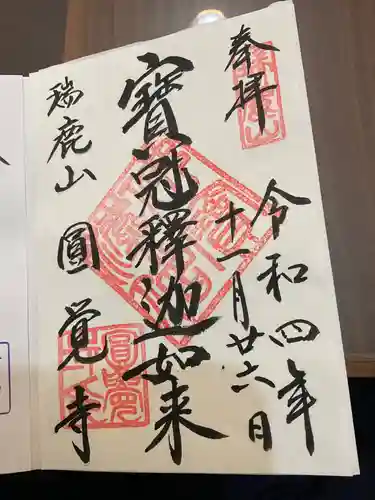 奉拝
令和四年
十一月廿六日
寶冠釋迦如来
瑞鹿山
圓覚寺